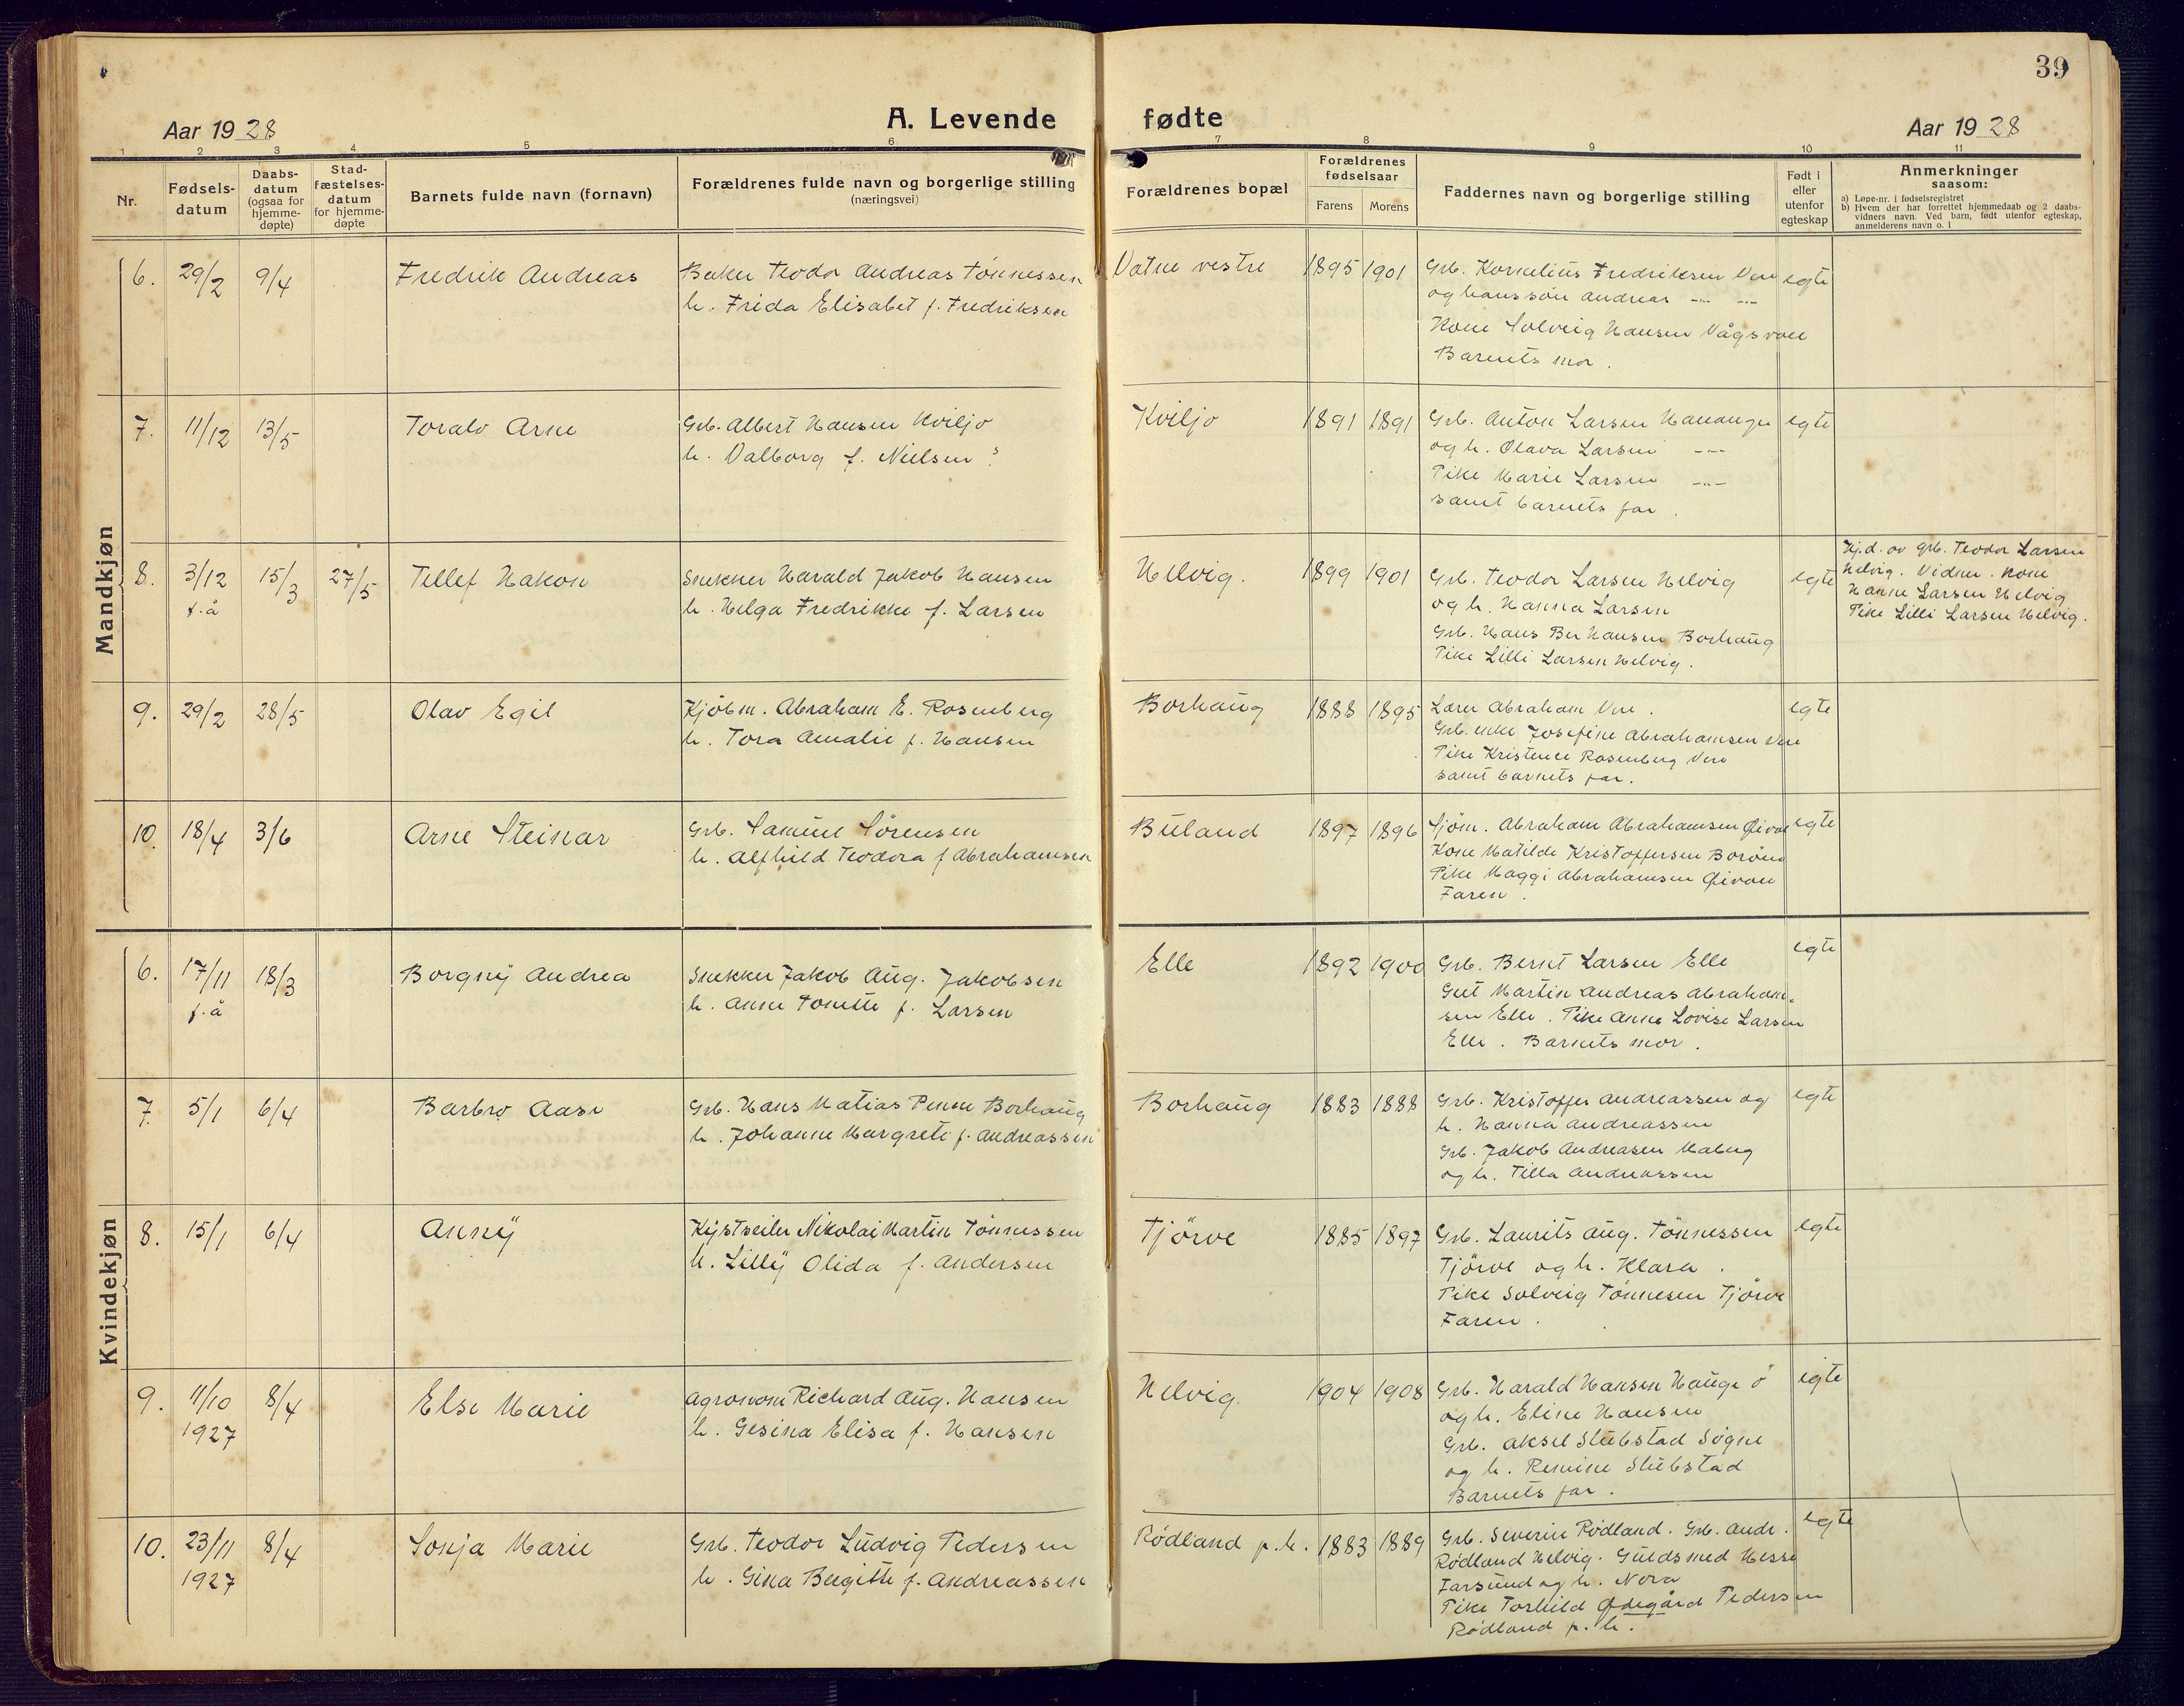 39
Aar 1928
A. Levende fødte
Aar 1928
1 2 3 4 5 6 7 8 9 10 11
Nr.
Fødsels-
datum
Daabs-
datum
(ogsaa for
hjemme-
døpte)
Stad-
fæstelses-
datum
for hjemme-
døpte
Barnets fulde navn (fornavn)
Forældrenes fulde navn og borgerlige stilling
(næringsvei)
Forældrenes bopæl
Forældrenes
fødselsaar
Farens Morens
Faddernes navn og borgerlige stilling
Født i
eller
utenfor
egteskap
Anmerkninger
saasom:
a) Løpe-nr. i fødselsregistret
b) Hvem der har forrettet hjemmedaab og 2 daabs-
vidners navn. Ved barn, født utenfor egteskap,
anmelderens navn o. l
Mandkjøn
6. 29/2 9/4 Fredrik Andreas
Baker Teodor Andreas Tönnessen
h. Frida Elisabet f. Fredriksen
Vatne vestre 1895 1901
Grb. Kornelius Fredriksen Vere
og hans sön Andreas -"- -"-
Kone Solveig Hansen Vågsvoll
Barnets mor.
egte
7. 11/12 13/5 Toralv Arne
Grb. Albert Hansen Kviljo
h. Valborg f. Nielsen ?
Kviljo 1891 1891
Grb. Anton Larsen Hananger
og h. Olava Larsen -"-
Pike Marie Larsen -"-
samt barnets far.
egte
8. 3/12 15/3 27/5 Tellef Hakon
f.å
Snekker Harald Jakob Hansen
h. Helga Fredrikke f. Larsen
Helvig. 1899 1901
Grb. Teodor Larsen Helvig
og h. Hanna Larsen
Grb. Hans Ber Hansen Borhaug
Pike Lilli Larsen Helvig.
egte
Hj.d. av grb. Teodor Larsen
Helvig. Vidner. Kone
Hanne Larsen Helvig
Pike Lilli Larsen Helvig.
9. 29/2 28/5 Olav Egil
Kjöbm. Abraham E. Rosenberg
h. Tora Amalie f. Hansen
Borhaug 1888 1895
Lærer Abraham Vere.
Grb. enke Josefine Abrahamsen Vere
Pike Kristence Rosenberg Vere
samt barnets far.
egte
10. 18/4 3/6 Arne Steinar
Grb. Samuel Sörensen
h. Alfhild Teodora f Abrahamsen
Buland 1897 1896
Sjöm. Abraham Abrahamsen
Kone Matilde Kristoffersen
Pike Maggi Abrahamsen
Faren.
egte
Kvindekjøn
6. 17/11 18/3 Borgny Andrea
f.å
Snekker Jakob Aug. Jakobsen
h. Anne Tonette f. Larsen
Elle 1892 1900
Grb. Bernt Larsen Elle
Gut Martin Andreas Abraham-
sen Elle. Pike Anne Lovise Larsen
Elle. Barnets mor.
egte
7. 5/1 6/4 Barbro Aase
Grb. Hans Matias Penne Borhaug
h. Johanne Margrete f. Andreassen
Borhaug 1883 1888
Grb. Kristoffer Andreassen og
h. Hanna Andreassen
Grb. Jakob Andreasen Maberg
og h. Tilla Andreassen
egte
8. 15/1 6/4 Anny
Kystseiler Nikolai Martin Tönnessen
h. Lilly Olida f. Andersen
Tjörve 1885 1897
Grb. Laurits Aug. Tönnessen
Tjörve og h. Klara.
Pike Solveig Tönnesen Tjörve
Faren.
egte
9. 11/10 8/4 Else Marie
1927
Agronom Richard Aug. Hansen
h. Gesina Elisa f. Hansen
Helvig. 1904 1908
Grb. Harald Hansen Hauge ö
og h. Eline Hansen
Grb. Aksel Stubstad Søgne
og h. Remine Stubstad
Barnets far.
egte
10. 23/11 8/4 Sonja Marie
1927
Grb. Teodor Ludvig Pedersen
h. Gina Bergitte f. Andreassen
Rödland p.h. 1883 1889
Grb. Severin Rödland. Grb. Andr.
Rödland Helvig. Guldsmed Hesse
Farsund og h. Nora
Pike Torhild Ødegård Pedersen
Rödland p.h.
egte